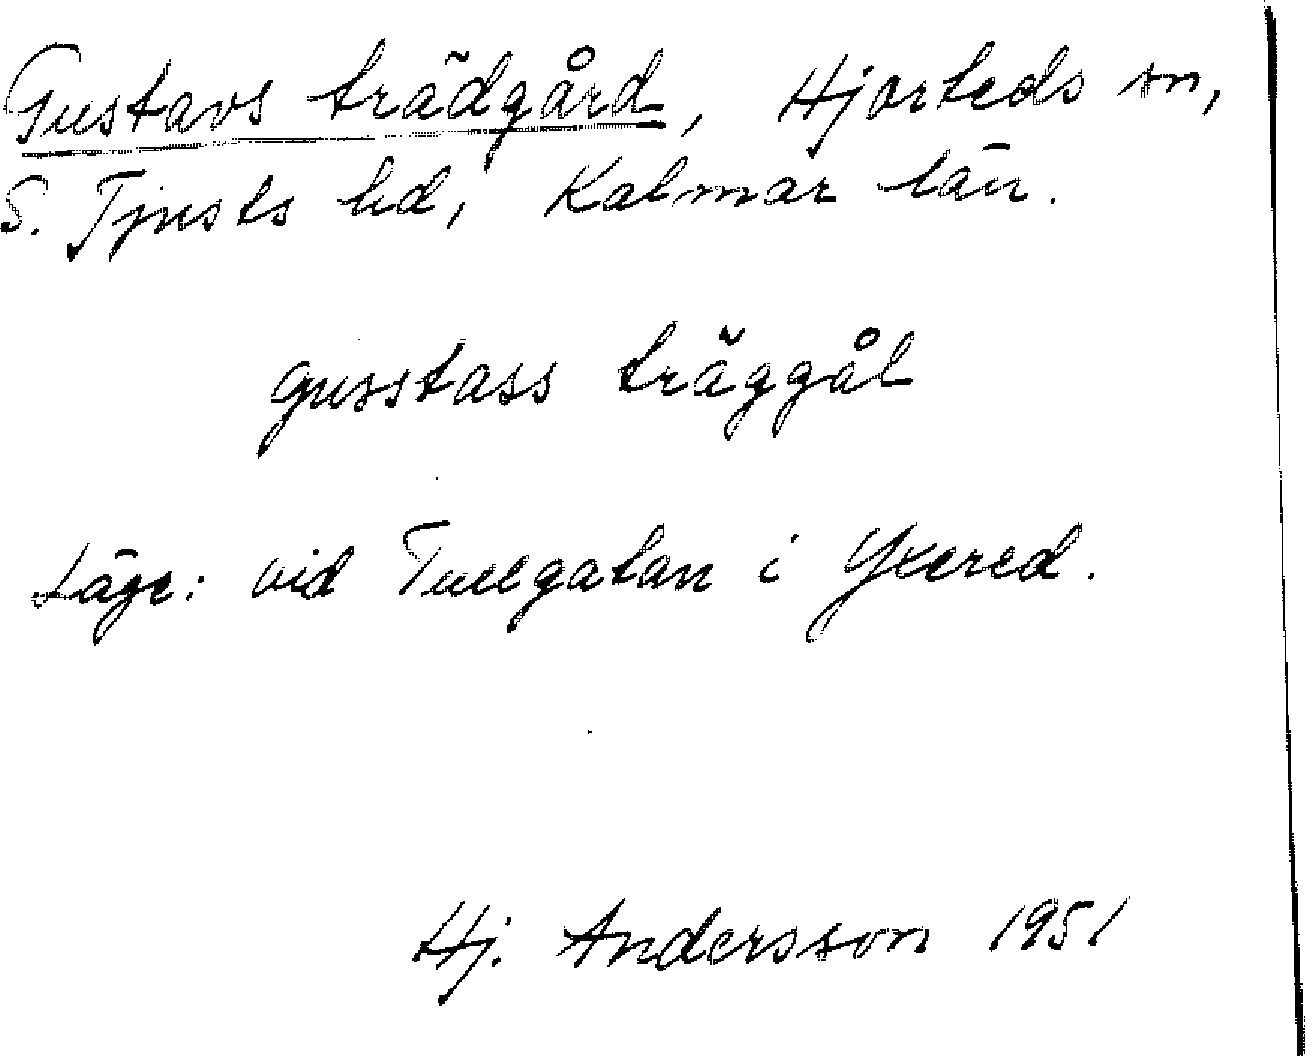 Gustavs trädgård, Hjorteds sn,
S. Tjusts hd, Kalmar län.
gusstass träggål
Läge: vid Tullgatan i Yxered.
Hj. Andersson 1951